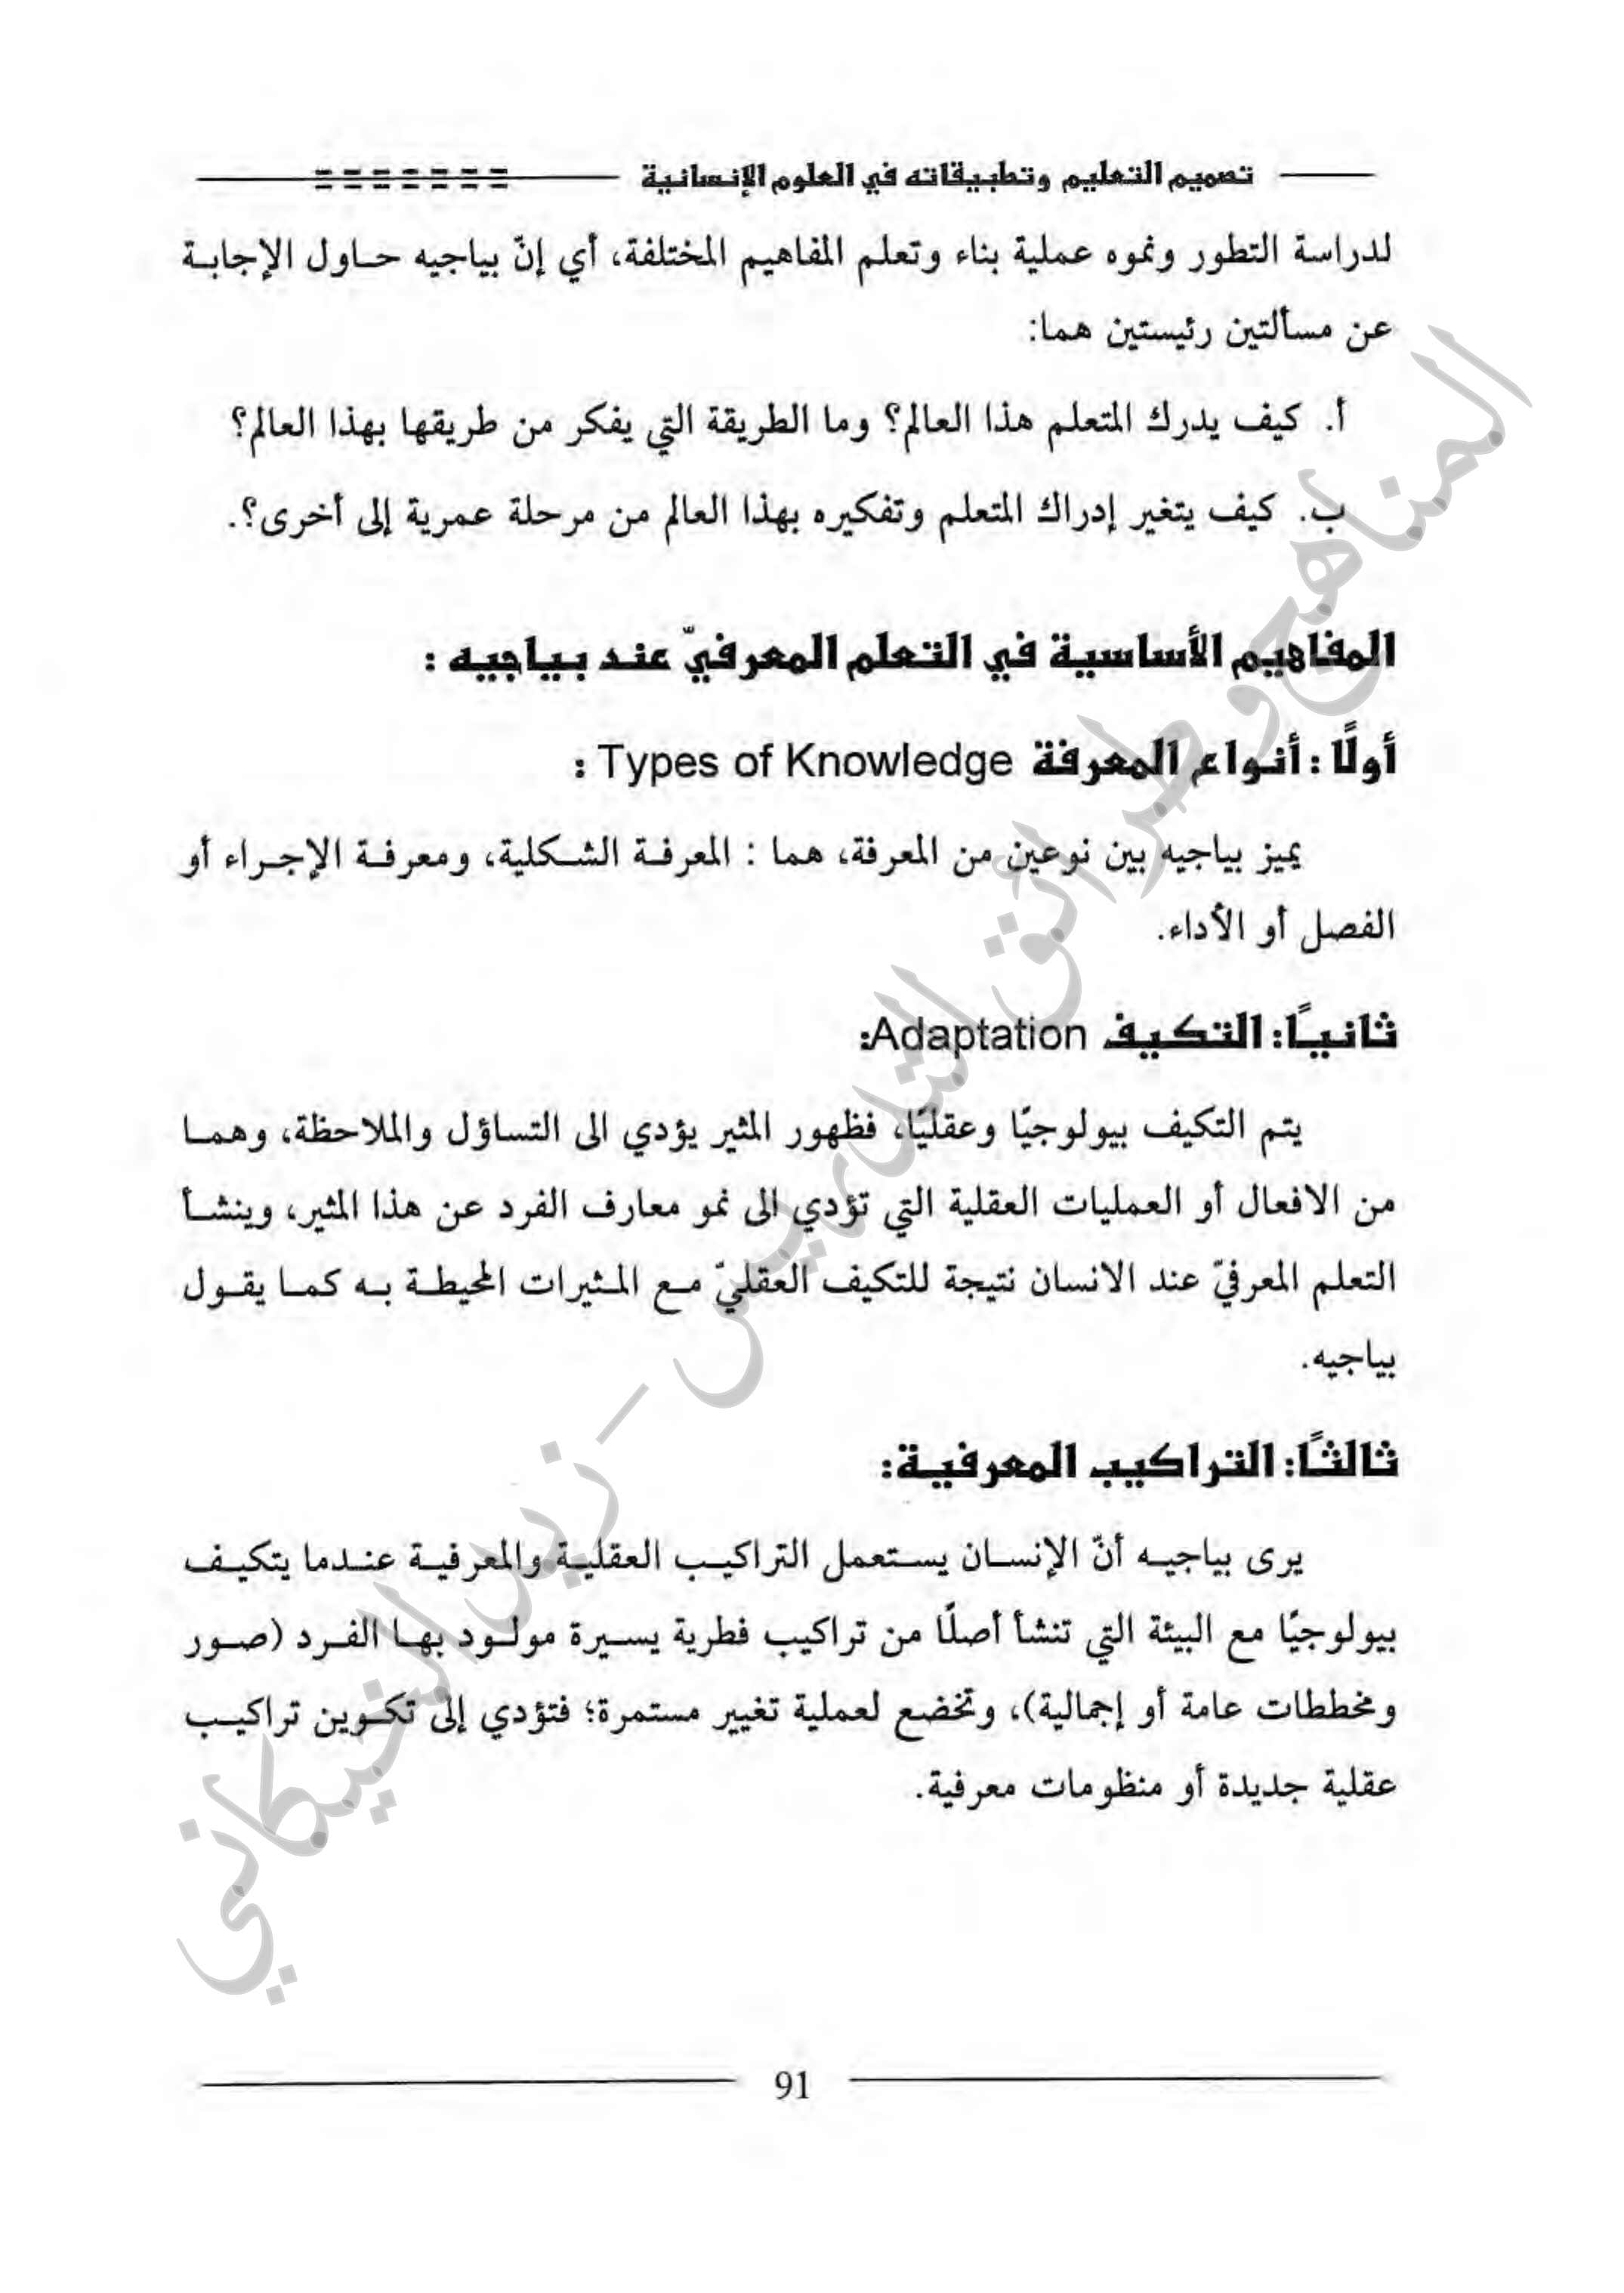 تصميم التعليم وتطبيقاته في العلوم الإنسانية
لدراسة التطور ونموه عملية بناء وتعلم المفاهيم المختلفة، أي إنّ بياجيه حاول الإجابة
عن مسألتين رئيستين هما:
أ. كيف يدرك المتعلم هذا العالم؟ وما الطريقة التي يفكر من طريقها بهذا العالم؟
ب. كيف يتغير إدراك المتعلم وتفكيره بهذا العالم من مرحلة عمرية إلى أخرى؟.
المفاهيم الأساسية في التعلم المعرفيّ عند بياجيه :
أولًا : أنواع المعرفة Types of Knowledge :
يميز بياجيه بين نوعين من المعرفة، هما : المعرفة الشكلية، ومعرفة الإجراء أو
الفصل أو الأداء.
ثانيًا: التكيف Adaptation:
يتم التكيف بيولوجيًا وعقليًا، فظهور المثير يؤدي الى التساؤل والملاحظة، وهما
من الافعال أو العمليات العقلية التي تؤدي الى نمو معارف الفرد عن هذا المثير، وينشأ
التعلم المعرفيّ عند الانسان نتيجة للتكيف العقليّ مع المثيرات المحيطة به كما يقول
بياجيه.
ثالثًا: التراكيب المعرفية:
يرى بياجيه أنّ الإنسان يستعمل التراكيب العقلية والمعرفية عندما يتكيف
بيولوجيًا مع البيئة التي تنشأ أصلًا من تراكيب فطرية يسيرة مولود بها الفرد (صور
ومخططات عامة أو إجمالية)، وتخضع لعملية تغيير مستمرة؛ فتؤدي إلى تكوين تراكيب
عقلية جديدة أو منظومات معرفية.
المناهج وطرائق التدريس – زيد الخيكاني
91